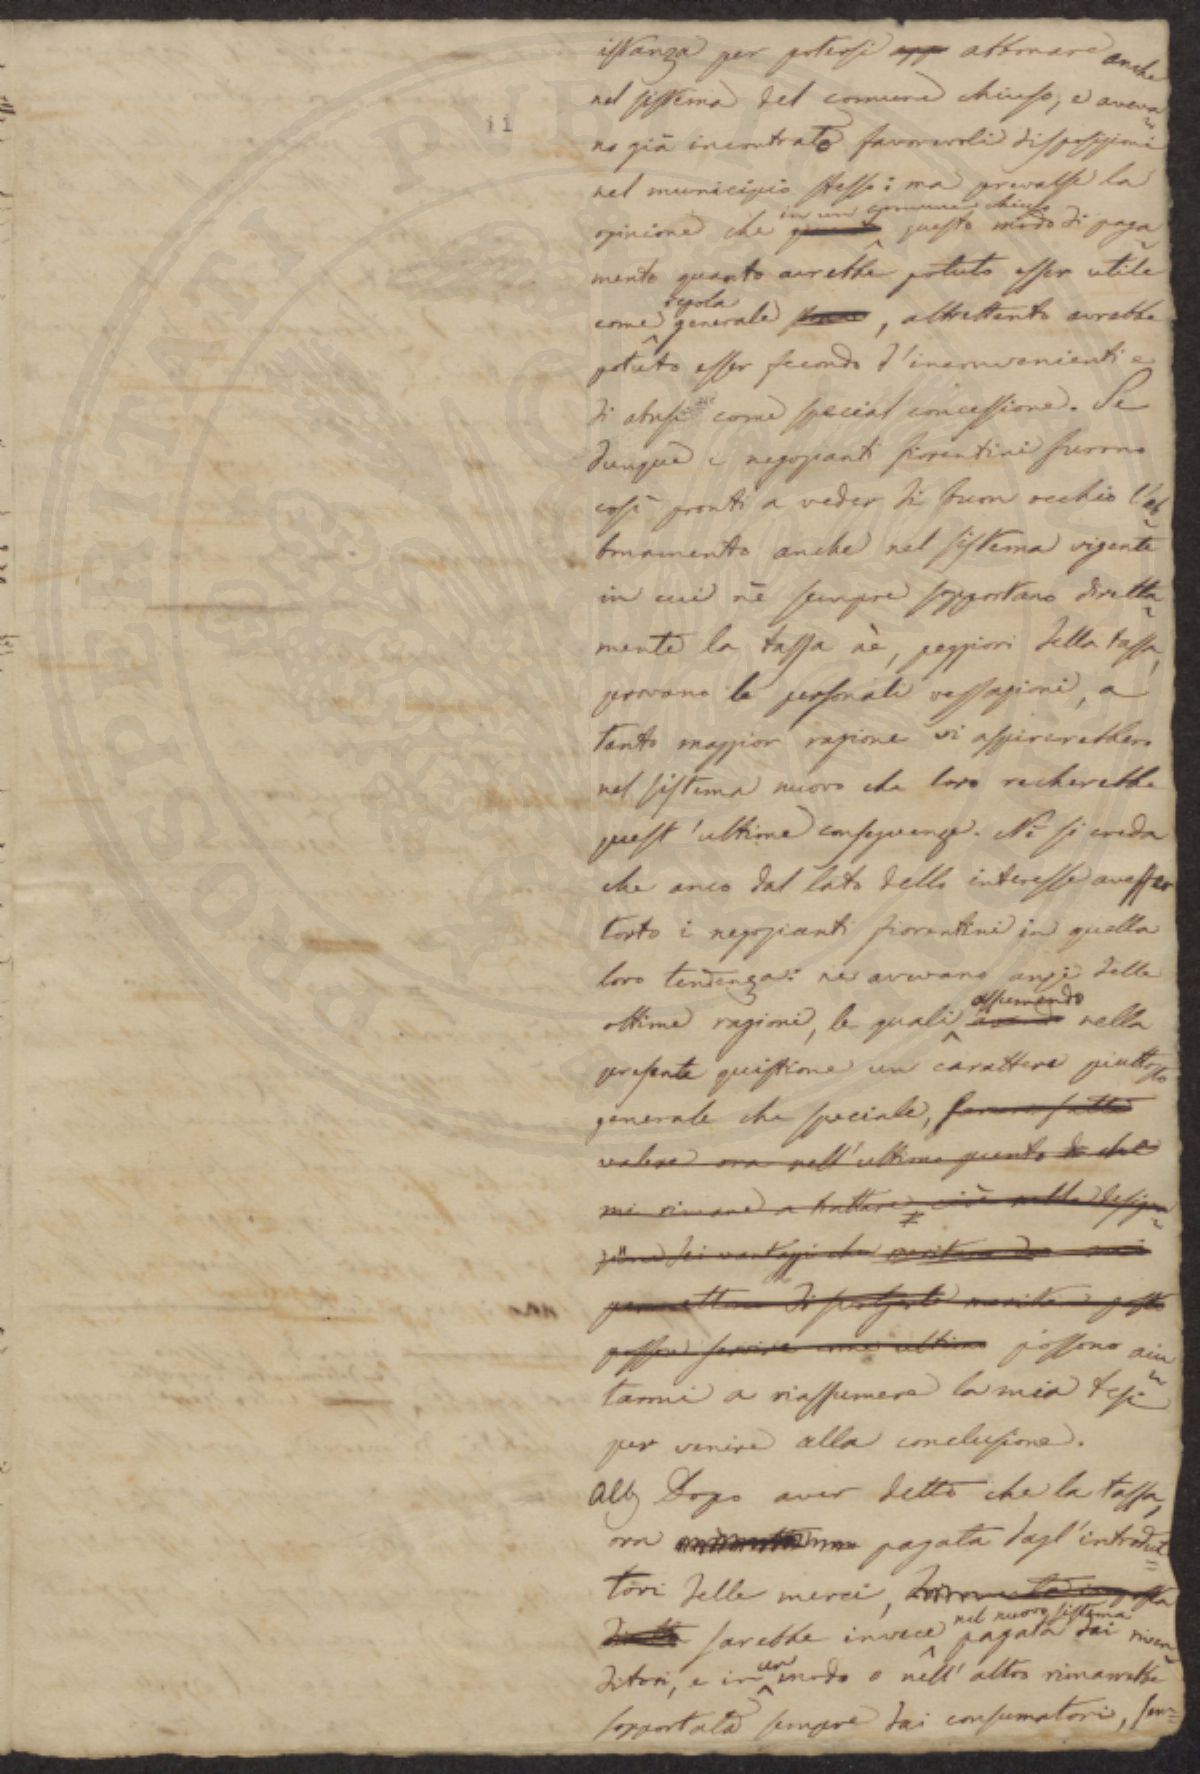 istanza per potersi app abbonare anche
nel sistema del comune chiuso, e aveva
no già incontrato favorevoli disposizioni
nel municipio stesso: ma prevalse la
in un comune chiuso
opinione che questo modo di paga
mento quanto avrebbe potuto esser utile
regola
come generale, altrettanto avrebbe
potuto esser fecondo d'inconvenienti e
di abusi come special concessione. Se
dunque i negozianti fiorentini furono
così pronti a veder di buon occhio l'ab
bonamento anche nel sistema vigente
in cui nè sempre sopportano diretta
mente la tassa nè, peggiori della tassa,
provano le personali vessazioni, a
tanto maggior ragione vi aspirerebbero
nel sistema nuovo che loro recherebbe
quest'ultime conseguenze. Nè si creda
che anco dal lato dello interesse avesser
torto i negozianti fiorentini in quella
loro tendenza: ne avevano anzi delle
assumendo
ottime ragioni, le quali nella
presente quistione un carattere piuttosto
generale che speciale,
valere ora nell'ultimo punto che
mi rimane a trattare, cioè nella designa
zione dei vantaggi che
possono ser come ultimo possono aiu
tarmi a riassumere la mia tesi
per venire alla conclusione.
All Dopo aver detto che la tassa,
ora pagata dagl'introdut
tori delle merci,
nel nuovo sistema
sarebbe invece pagata dai riven
un
ditori, e in modo o nell'altro rimarrebbe
sopportata sempre dai consumatori, sen